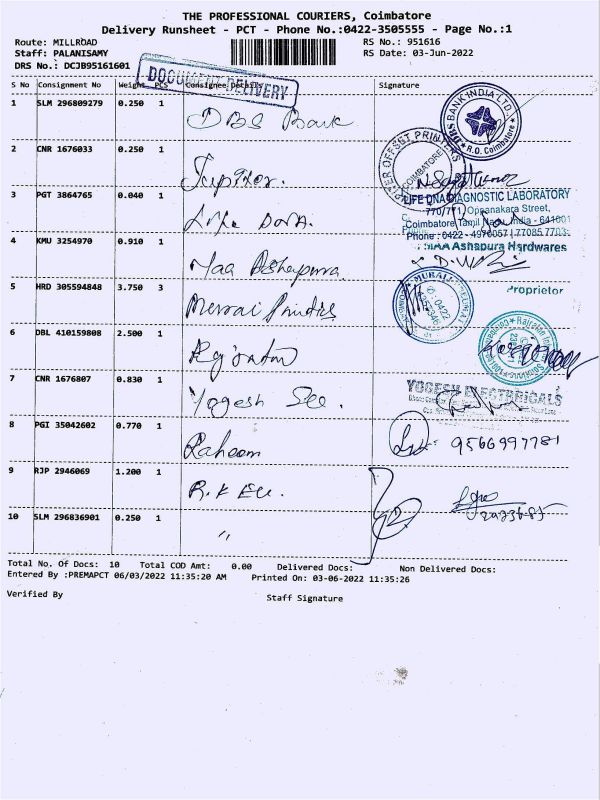 THE PROFESSIONAL COURIERS, Coimbatore
Delivery Runsheet - PCT - Phone No.:0422-3505555 - Page No.:1
Route: MILLROAD
RS No.: 951616
Staff: PALANISAMY
RS Date: 03-Jun-2022
DRS No.: DCJB95161601
DOCUMENT DELIVERY
S No Consignment No Weight PCS Consignee Details Signature
1 SLM 296809279 0.250 1 DBS Bank
BANK INDIA LTD.
R.O. Coimbatore
2 CNR 1676033 0.250 1 Jupiter.
OFFSET PRINTERS
COIMBATORE
3 PGT 3864765 0.040 1 Life DNA.
LIFE DNA DIAGNOSTIC LABORATORY
770/771, Oppanakara Street,
Coimbatore Tamil Nadu India - 641001
Phone : 0422 - 4976057 | 77085 7703
4 KMU 3254970 0.910 1 Maa Ashapura
MAA Ashapura Hardwares
Proprietor
5 HRD 305594848 3.750 3
MURALI
6 DBL 410159808 2.500 1
7 CNR 1676807 0.830 1 Yogesh Ele.
YOGESH ELECTRICALS
8 PGI 35042602 0.770 1 Raheem
9566997781
9 RJP 2946069 1.200 1 R.K Ele.
10 SLM 296836901 0.250 1 "
Total No. Of Docs: 10 Total COD Amt: 0.00 Delivered Docs: Non Delivered Docs:
Entered By :PREMAPCT 06/03/2022 11:35:20 AM Printed On: 03-06-2022 11:35:26
Verified By
Staff Signature